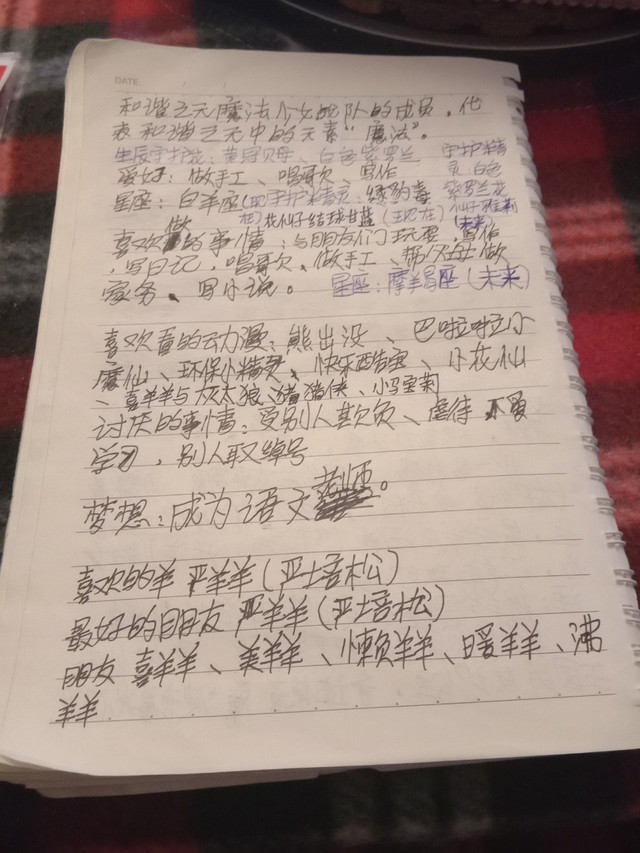 DATE
和谐之元魔法少女战队的成员，代
表和谐之元中的元素“魔法”。
生辰守护花：黄冠贝母、白色紫罗兰
爱好：做手工、唱歌、写作
守护精灵 白色
紫罗兰花
星座：白羊座
花仙子结球甘蓝（现在）（未来）
喜欢做的事情：与朋友们玩耍，写作
，写日记，唱歌、做手工、帮父母做
家务、写小说。 星座：摩羯座（未来）
喜欢看的动漫：熊出没、巴啦啦小
魔仙、环保小精灵、快乐酷宝、小花仙
、喜羊羊与灰太狼、猪猪侠、小马宝莉
讨厌的事情：受别人欺负、虐待、不爱
学习，别人取绰号
梦想：成为语文老师。
喜欢的羊 严羊羊（严培松）
最好的朋友 严羊羊（严培松）
朋友 喜羊羊、美羊羊、懒羊羊、暖羊羊、沸
羊羊